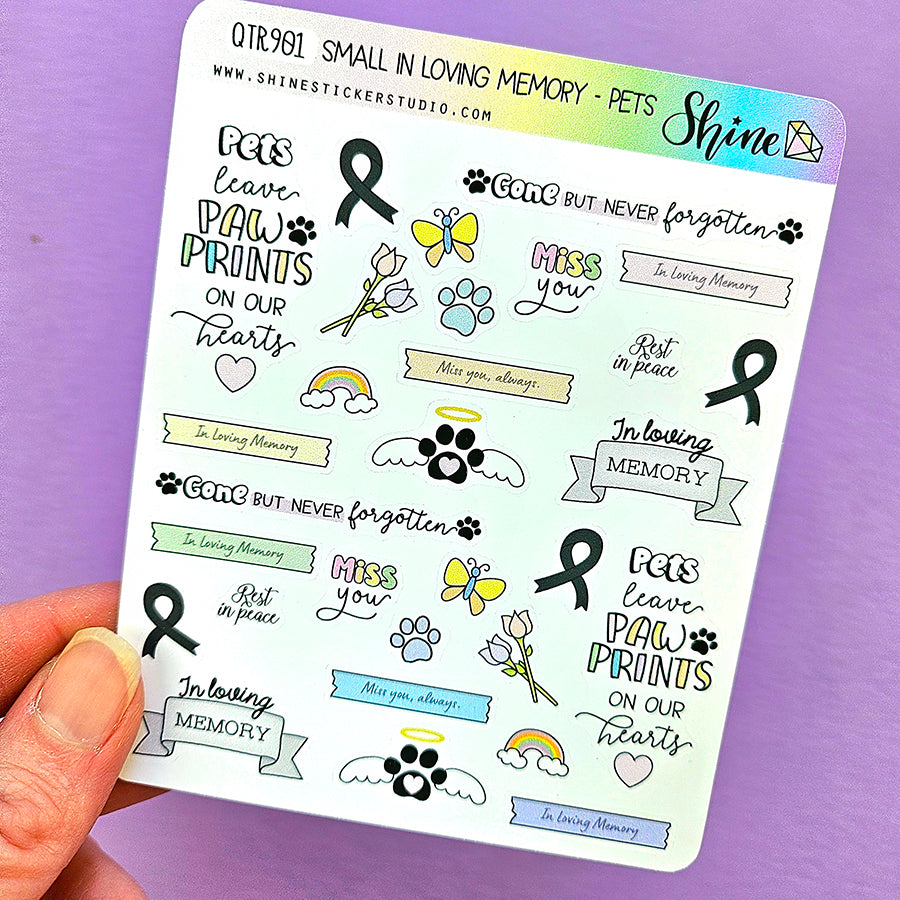 QTR901 SMALL IN LOVING MEMORY - PETS Shine
WWW.SHINESTICKERSTUDIO.COM
Pets
leave
PAW
PRINTS
ON OUR
hearts
Gone BUT NEVER forgotten
Miss
you
In Loving Memory
Rest
in peace
Miss you, always.
In Loving Memory
In loving
MEMORY
Gone BUT NEVER forgotten
In Loving Memory
Rest
in peace
Miss
you
Pets
leave
PAW
PRINTS
ON OUR
hearts
In loving
MEMORY
Miss you, always.
In Loving Memory